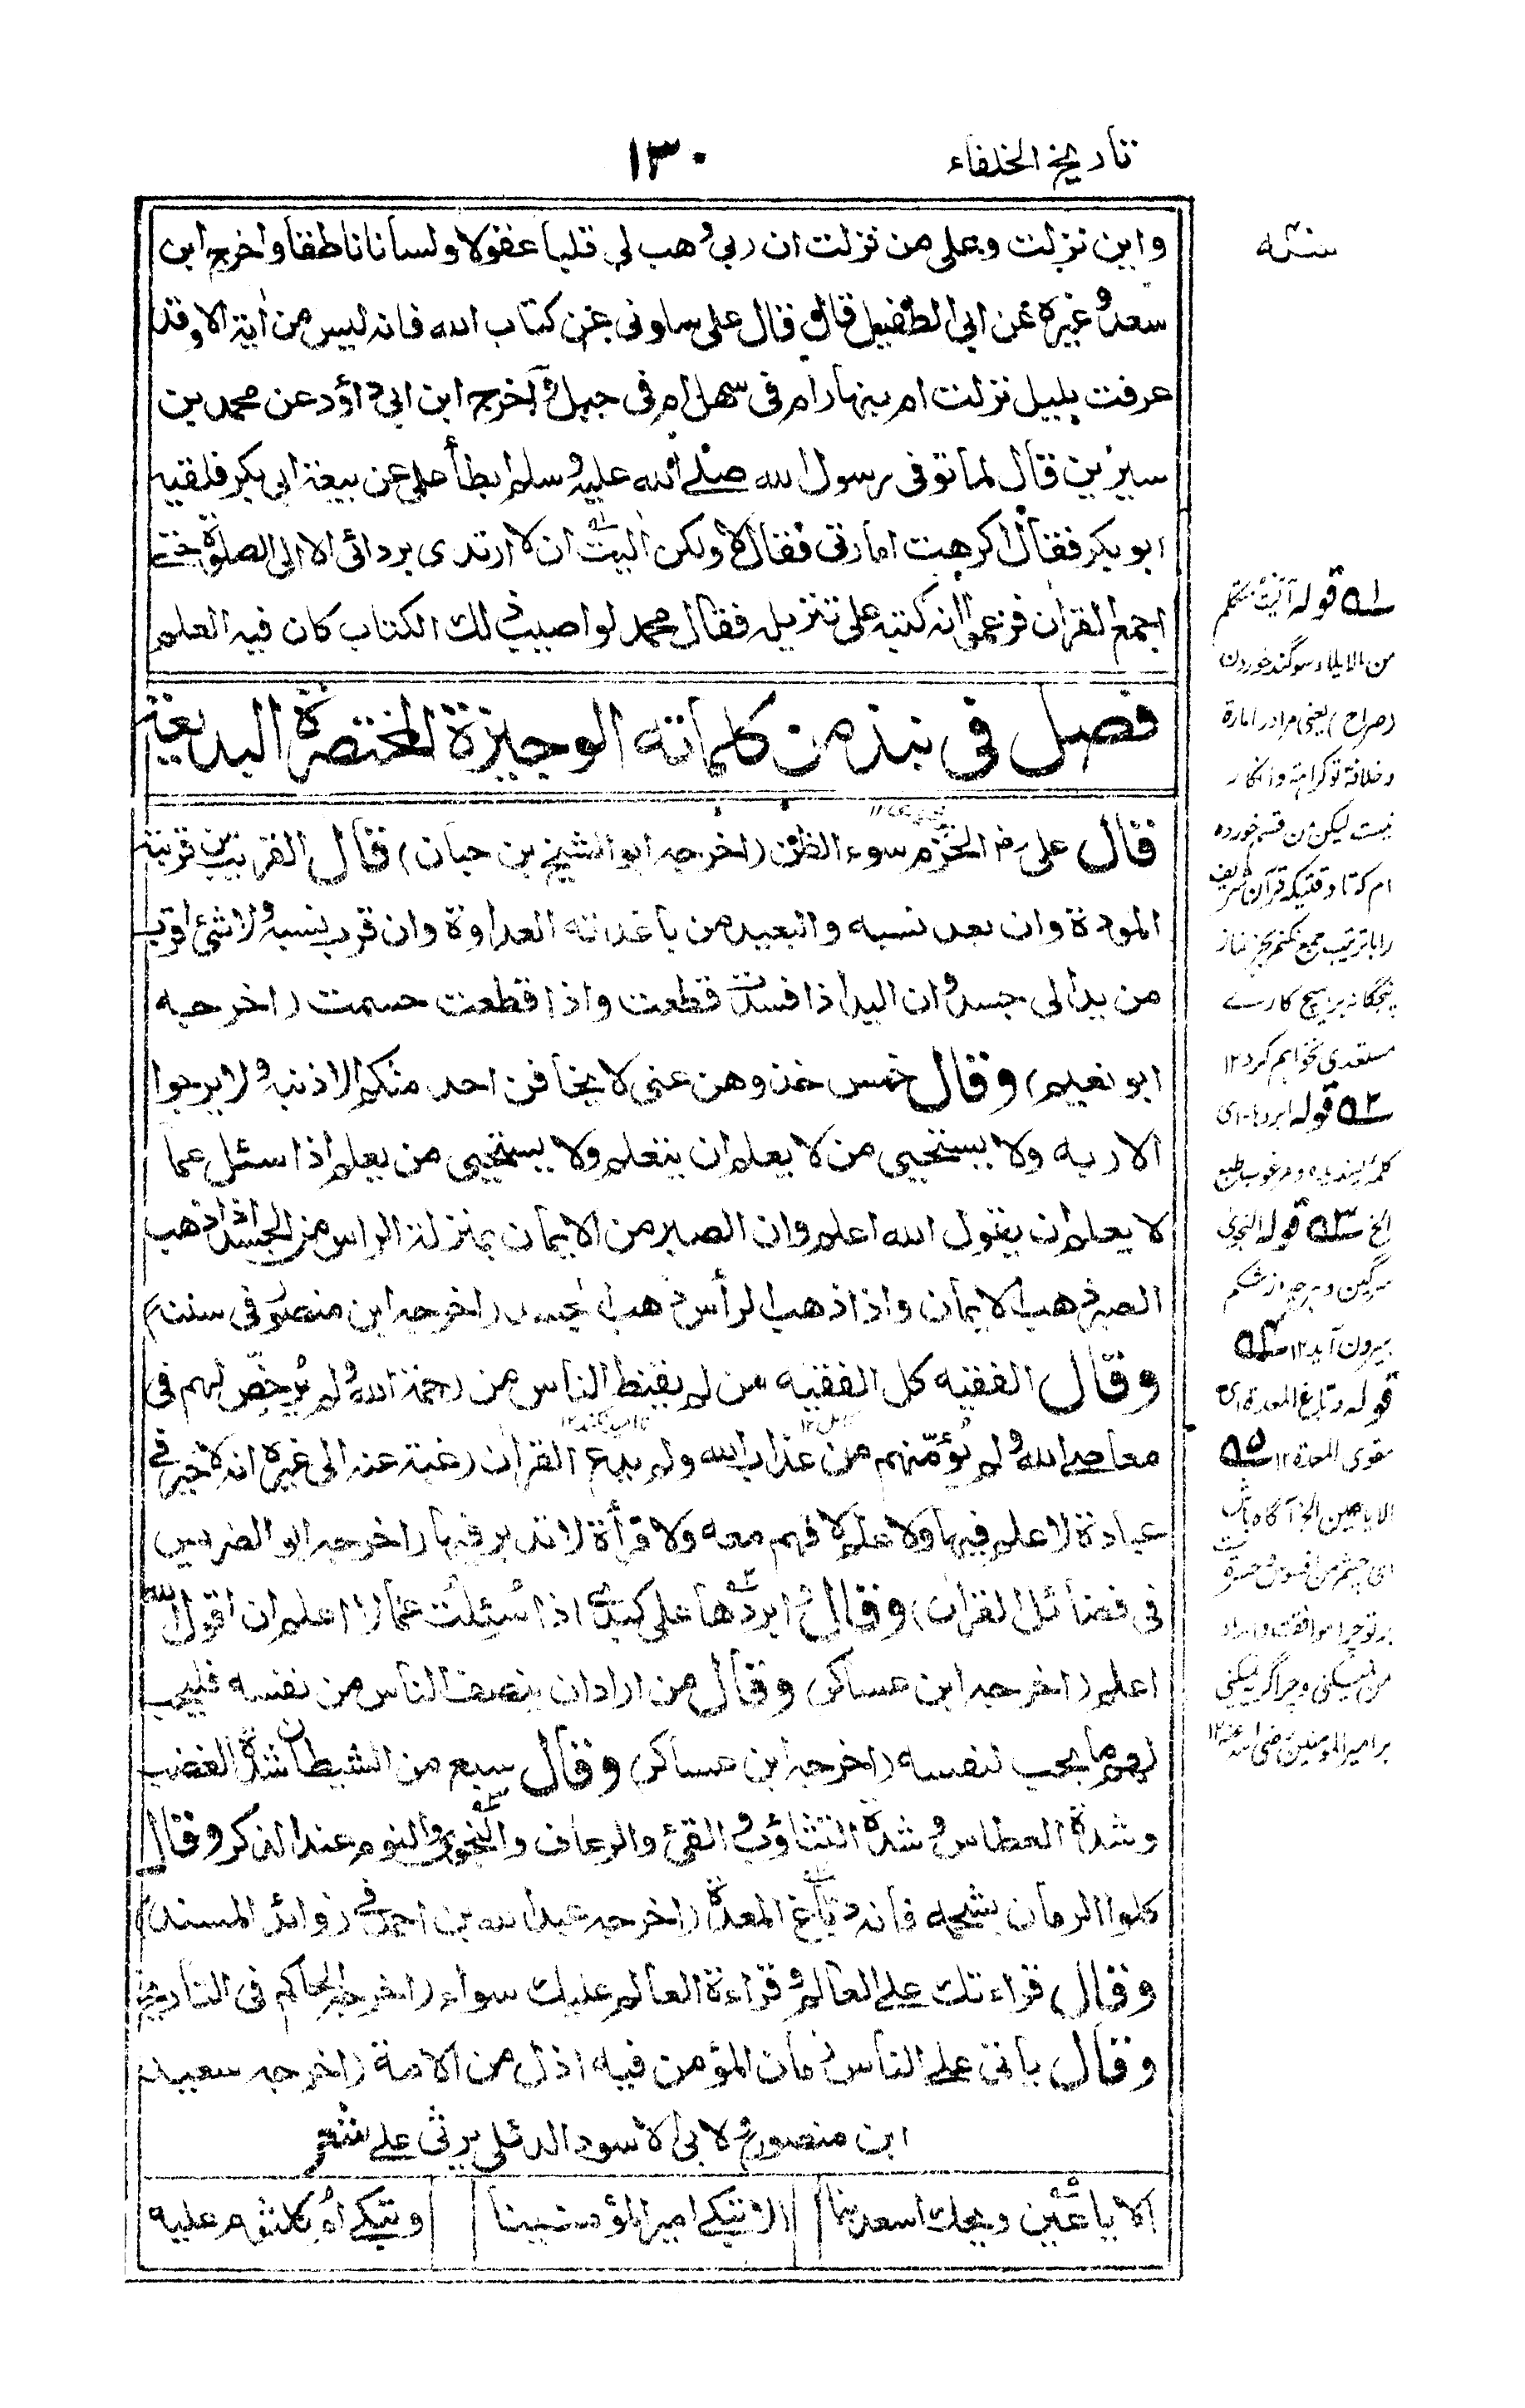 تاريخ الخلفاء
١٣٠
واين نزلت وعلى من نزلت ان ربي وهب لي قلبا عقولا ولسانا ناطقا واخرج ابن
سعد وغيره عن ابي الطفيل قال قال على سلونى عن كتاب الله فانه ليس من اية الا وقد
عرفت بليل نزلت ام بنهار ام فى سهل ام فى جبل واخرج ابن ابي داؤد عن محمد بن
سيرين قال لما توفى رسول الله صلى الله عليه وسلم ابطأ علي عن بيعة ابي بكر فلقيه
ابو بكر فقال اكرهت امارتى فقال لا ولكن اليت ان لا ارتدى بردائى الا الى الصلوة حتى
اجمع القران فزعموا انه كتبه على تنزيله فقال محمد لو اصيب ذلك الكتاب كان فيه العلم
فصل فى نبذ من كلماته الوجيزة المختصرة البديعة
قال على رض الحزم سوء الظن (اخرجه ابو الشيخ بن حبان) قال القريب من قربته
المودة وان بعد نسبه والبعيد من باعدته العداوة وان قرب نسبه ولا شئ اقرب
من يد الى جسد وان اليد اذا فسدت قطعت واذا قطعت حسمت (اخرجه
ابو نعيم) وقال خمس خذوهن عنى لا يخافن احد منكم الا ذنبه ولا يرجوا
الا ربه ولا يستحيى من لا يعلم ان يتعلم ولا يستحيى من يعلم اذا سئل عما
لا يعلم ان يقول الله اعلم وان الصبر من الايمان بمنزلة الراس من الجسد اذا ذهب
الصبر ذهب الايمان واذا ذهب الرأس ذهب الجسد (اخرجه ابن منصور فى سننه)
وقال الفقيه كل الفقيه من لم يقنط الناس من رحمة الله ولم يرخص لهم فى
معاصي الله ولم يؤمنهم من عذاب الله ولم يدع القران رغبة عنه الى غيره انه لا خير فى
عبادة لا علم فيها ولا علم لا فهم معه ولا قرأة لا تدبر فيها (اخرجه ابو الضريس
فى فضائل القران) وقال وابردها على كبدى اذا سئلت عما لا اعلم ان اقول الله
اعلم (اخرجه ابن عساكر) وقال من اراد ان ينصف الناس من نفسه فليحب
لهم ما يحب لنفسه (اخرجه ابن عساكر) وقال سبع من الشيطان شدة الغضب
وشدة العطاس وشدة التثاؤب والقئ والرعاف والنجوى والنوم عند الذكر وقال
كلوا الرمان بشحمه فانه دباغ المعدة (اخرجه عبد الله بن احمد فى زوائد المسند)
وقال قراءتك على العالم وقراءة العالم عليك سواء (اخرجه الحاكم فى التاريخ)
وقال ياتى على الناس زمان المؤمن فيه اذل من الامة (اخرجه سعيد
ابن منصور) ولابى الاسود الدئلى يرثى على شعر
الا يا عين ويحك اسعدينا الا تبكى امير المؤمنينا وتبكى ام كلثوم عليه
قوله آليت متكلم
من الايلاء سوگند خوردن
(صراح) يعنى مرا در امارة
و خلافة تو كراهت و انكار
نيست ليكن من قسم خورده
ام كه تا وقتيكه قرآن شريف
را با ترتيب جمع نكنم بجز نماز
پنجگانه بر هيچ كارے
مستعدى نخواهم كرد ١٢
قوله ابردها اى
كلمه پسنديده و مرغوب طبع
الخ قوله النجوى
سرگين و هرچه از شكم
بيرون آيد ١٢
قوله دباغ المعدة اى
مقوى المعدة ١٢
الا يا عين الخ آگاه باش
اى چشم من افسوس حسرت
بر تو چرا موافقت و امداد
من نميكنى و چرا گريه نميكنى
بر امير المومنين رضى الله عنه ١٢